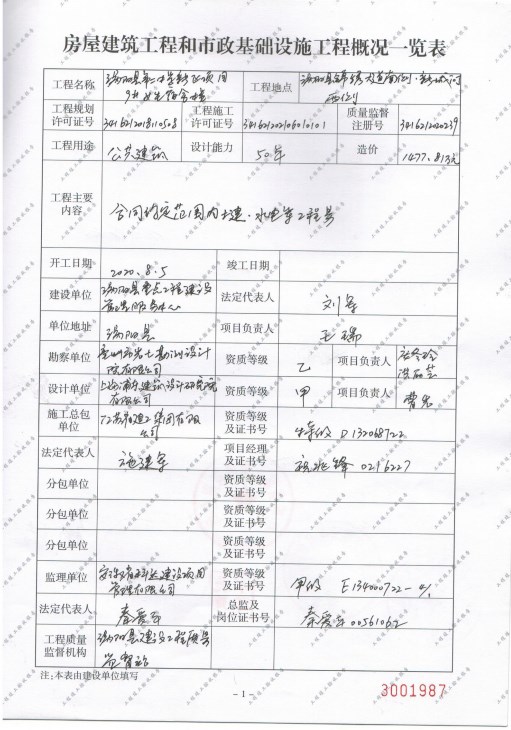 房屋建筑工程和市政基础设施工程概况一览表
工程名称
涡阳县第二中学新建项目
9#女生宿舍楼
工程地点
西侧
工程规划
许可证号
341621201810508
工程施工
许可证号
3416212020060101
质量监督
注册号
3416212020239
工程用途
公共建筑
设计能力
50年
造价
1477.813万
工程主要
内容
合同约定范围内土建、水电等工程量
开工日期
2020.8.5
竣工日期
建设单位
涡阳县重点工程建设
管理服务中心
法定代表人
刘军
单位地址
涡阳县
项目负责人
王瑞
勘察单位
岩土勘测设计
院有限公司
资质等级
乙
项目负责人
设计单位
上海浦东建筑设计研究院
有限公司
资质等级
甲
项目负责人
曹
施工总包
单位
江苏南通二建集团有限
公司
资质等级
及证书号
特级 D132068722
法定代表人
施建军
项目经理
及证书号
祝兆锋 0216227
分包单位
资质等级
及证书号
分包单位
资质等级
及证书号
分包单位
资质等级
及证书号
监理单位
安徽省科达建设项目
管理有限公司
资质等级
及证书号
甲级 E134000722-4/1
法定代表人
秦爱军
总监及
岗位证书号
秦爱军 00561062
工程质量
监督机构
涡阳县建设工程质量
监督站
注:本表由建设单位填写
- 1 -
3001987